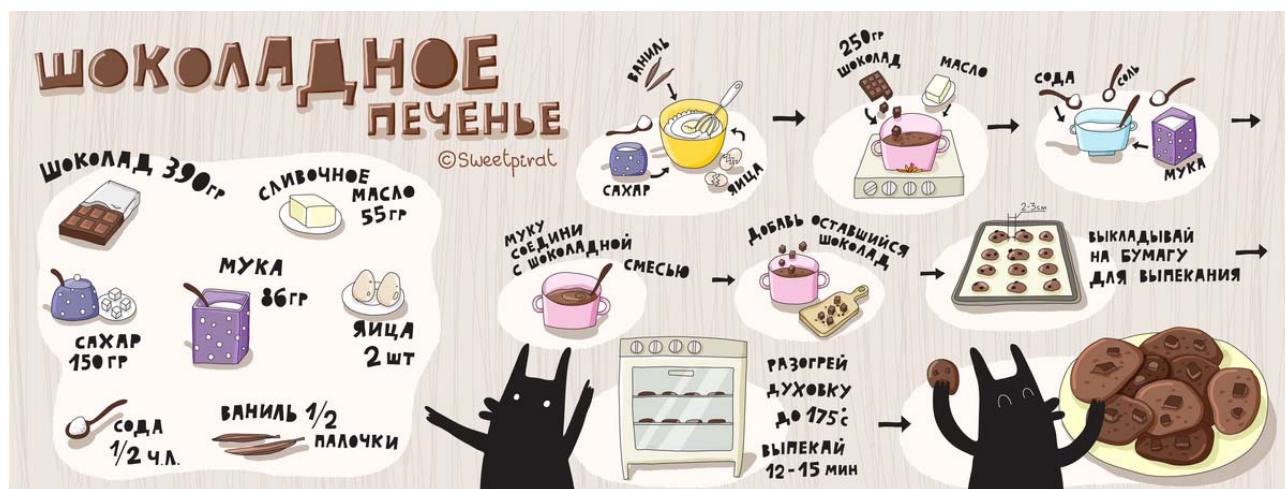 ШОКОЛАДНОЕ
ПЕЧЕНЬЕ
©Sweetpirat
ШОКОЛАД 390гр
СЛИВОЧНОЕ
МАСЛО
55гр
САХАР
150гр
МУКА
86гр
ЯИЦА
2 шт
СОДА
1/2 ч.л.
ВАНИЛЬ 1/2
ПАЛОЧКИ
ВАНИЛЬ
САХАР
ЯИЦА
250гр
ШОКОЛАД
МАСЛО
СОДА
СОЛЬ
МУКА
МУКУ
СОЕДИНИ
С ШОКОЛАДНОЙ
СМЕСЬЮ
ДОБАВЬ ОСТАВШИЙСЯ
ШОКОЛАД
2-3см
ВЫКЛАДЫВАЙ
НА БУМАГУ
ДЛЯ ВЫПЕКАНИЯ
РАЗОГРЕЙ
ДУХОВКУ
ДО 175°С
ВЫПЕКАЙ
12-15 МИН